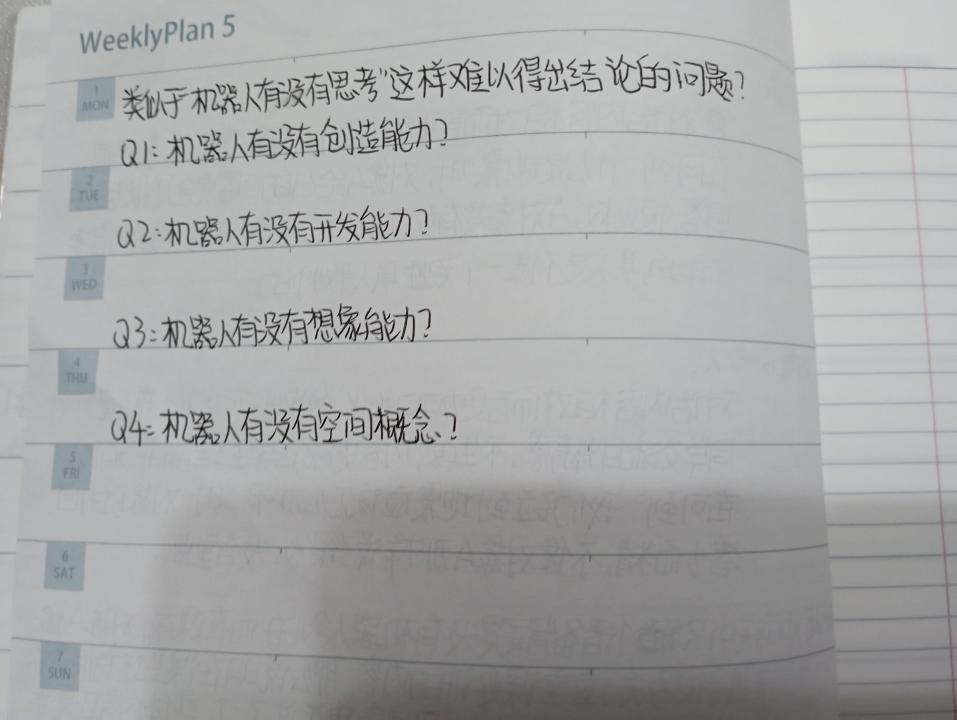 WeeklyPlan 5
1
MON
类似于机器人有没有思考"这样难以得出结论的问题?
Q1:机器人有没有创造能力?
2
TUE
Q2:机器人有没有开发能力?
3
WED
Q3:机器人有没有想象能力?
4
THU
Q4:机器人有没有空间概念?
5
FRI
6
SAT
7
SUN